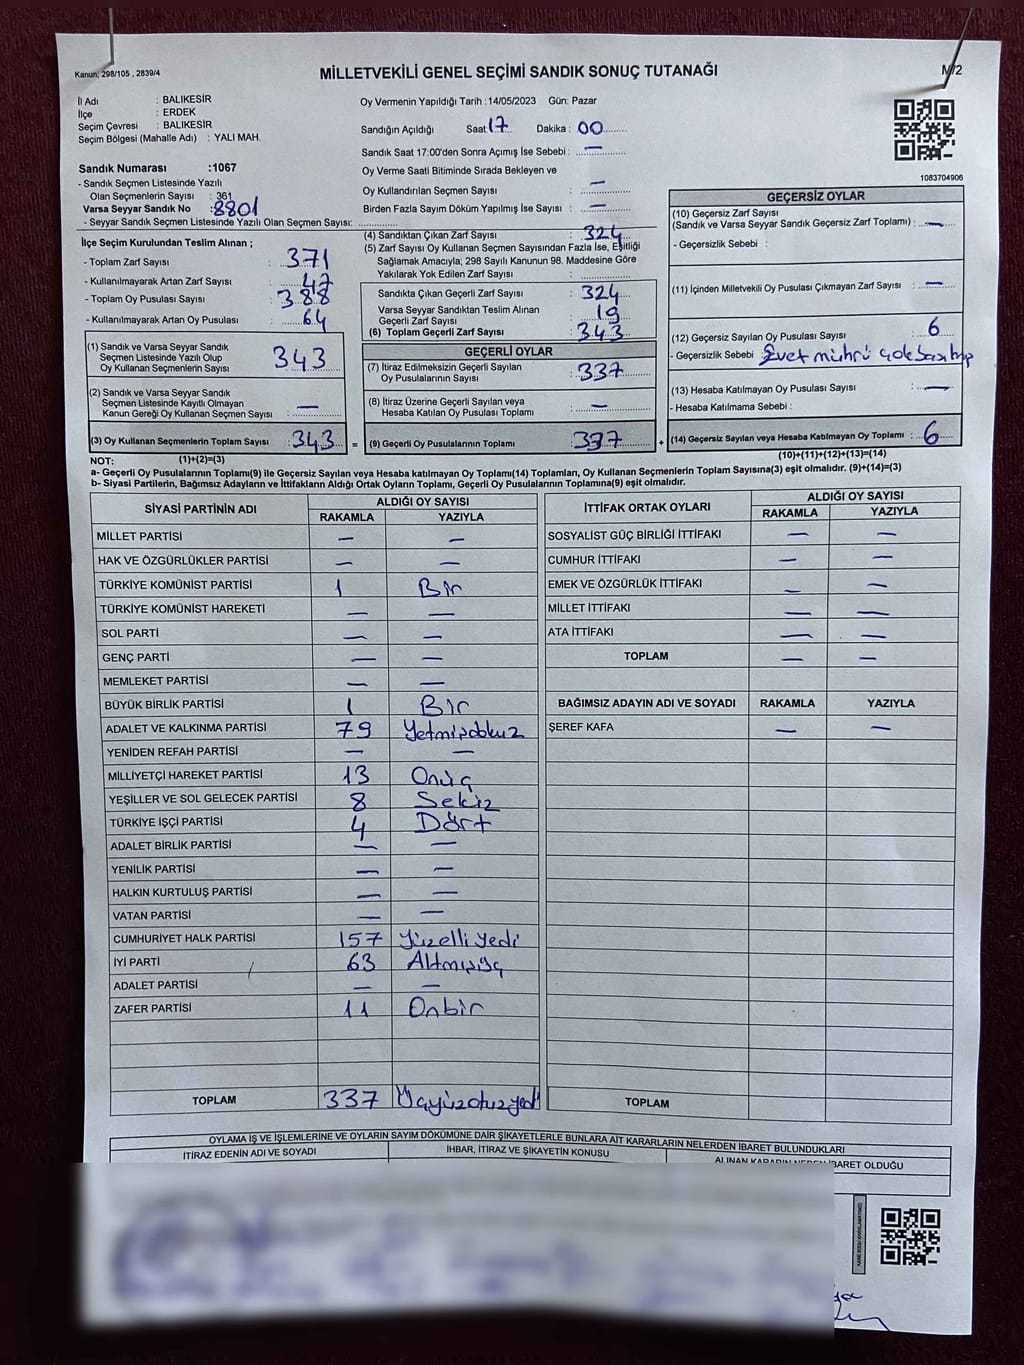 Kanun, 298/105 , 2839/4
MİLLETVEKİLİ GENEL SEÇİMİ SANDIK SONUÇ TUTANAĞI
M/2
İl Adı : BALIKESİR
İlçe : ERDEK
Seçim Çevresi : BALIKESİR
Seçim Bölgesi (Mahalle Adı) : YALI MAH.
Oy Vermenin Yapıldığı Tarih :14/05/2023 Gün: Pazar
Sandığın Açıldığı Saat: 17 Dakika : 00
Sandık Saat 17:00'den Sonra Açımış İse Sebebi : —
Oy Verme Saati Bitiminde Sırada Bekleyen ve
Oy Kullandırılan Seçmen Sayısı : —
Birden Fazla Sayım Döküm Yapılmış İse Sayısı : —
1083704906
Sandık Numarası :1067
- Sandık Seçmen Listesinde Yazılı
Olan Seçmenlerin Sayısı : 361
Varsa Seyyar Sandık No : 8801
- Seyyar Sandık Seçmen Listesinde Yazılı Olan Seçmen Sayısı:
İlçe Seçim Kurulundan Teslim Alınan ;
- Toplam Zarf Sayısı : 371
- Kullanılmayarak Artan Zarf Sayısı : 47
- Toplam Oy Pusulası Sayısı : 388
- Kullanılmayarak Artan Oy Pusulası : 64
(1) Sandık ve Varsa Seyyar Sandık
Seçmen Listesinde Yazılı Olup
Oy Kullanan Seçmenlerin Sayısı : 343
(2) Sandık ve Varsa Seyyar Sandık
Seçmen Listesinde Kayıtlı Olmayan
Kanun Gereği Oy Kullanan Seçmen Sayısı : —
(3) Oy Kullanan Seçmenlerin Toplam Sayısı : 343
(1)+(2)=(3)
(4) Sandıktan Çıkan Zarf Sayısı : 324
(5) Zarf Sayısı Oy Kullanan Seçmen Sayısından Fazla İse, Eşitliği
Sağlamak Amacıyla; 298 Sayılı Kanunun 98. Maddesine Göre
Yakılarak Yok Edilen Zarf Sayısı :
Sandıkta Çıkan Geçerli Zarf Sayısı : 324
Varsa Seyyar Sandıktan Teslim Alınan
Geçerli Zarf Sayısı : 19
(6) Toplam Geçerli Zarf Sayısı : 343
GEÇERLİ OYLAR
(7) İtiraz Edilmeksizin Geçerli Sayılan
Oy Pusulalarının Sayısı : 337
(8) İtiraz Üzerine Geçerli Sayılan veya
Hesaba Katılan Oy Pusulası Toplamı : —
= (9) Geçerli Oy Pusulalarının Toplamı : 337
GEÇERSİZ OYLAR
(10) Geçersiz Zarf Sayısı
(Sandık ve Varsa Seyyar Sandık Geçersiz Zarf Toplamı) : —
- Geçersizlik Sebebi :
(11) İçinden Milletvekili Oy Pusulası Çıkmayan Zarf Sayısı : —
(12) Geçersiz Sayılan Oy Pusulası Sayısı : 6
- Geçersizlik Sebebi : Evet mührü çok
(13) Hesaba Katılmayan Oy Pusulası Sayısı : —
- Hesaba Katılmama Sebebi :
+ (14) Geçersiz Sayılan veya Hesaba Katılmayan Oy Toplamı : 6
(10)+(11)+(12)+(13)=(14)
NOT:
a- Geçerli Oy Pusulalarının Toplamı(9) ile Geçersiz Sayılan veya Hesaba katılmayan Oy Toplamı(14) Toplamları, Oy Kullanan Seçmenlerin Toplam Sayısına(3) eşit olmalıdır. (9)+(14)=(3)
b- Siyasi Partilerin, Bağımsız Adayların ve İttifakların Aldığı Ortak Oyların Toplamı, Geçerli Oy Pusulalarının Toplamına(9) eşit olmalıdır.
SİYASİ PARTİNİN ADI ALDIĞI OY SAYISI
RAKAMLA YAZIYLA
MİLLET PARTİSİ — —
HAK VE ÖZGÜRLÜKLER PARTİSİ — —
TÜRKİYE KOMÜNİST PARTİSİ 1 Bir
TÜRKİYE KOMÜNİST HAREKETİ — —
SOL PARTİ — —
GENÇ PARTİ — —
MEMLEKET PARTİSİ — —
BÜYÜK BİRLİK PARTİSİ 1 Bir
ADALET VE KALKINMA PARTİSİ 79 Yetmişdokuz
YENİDEN REFAH PARTİSİ — —
MİLLİYETÇİ HAREKET PARTİSİ 13 Onüç
YEŞİLLER VE SOL GELECEK PARTİSİ 8 Sekiz
TÜRKİYE İŞÇİ PARTİSİ 4 Dört
ADALET BİRLİK PARTİSİ — —
YENİLİK PARTİSİ — —
HALKIN KURTULUŞ PARTİSİ — —
VATAN PARTİSİ — —
CUMHURİYET HALK PARTİSİ 157 Yüzelliyedi
İYİ PARTİ 63 Altmışüç
ADALET PARTİSİ — —
ZAFER PARTİSİ 11 Onbir
TOPLAM 337 Üçyüzotuzyedi
İTTİFAK ORTAK OYLARI ALDIĞI OY SAYISI
RAKAMLA YAZIYLA
SOSYALİST GÜÇ BİRLİĞİ İTTİFAKI — —
CUMHUR İTTİFAKI — —
EMEK VE ÖZGÜRLÜK İTTİFAKI — —
MİLLET İTTİFAKI — —
ATA İTTİFAKI — —
TOPLAM — —
BAĞIMSIZ ADAYIN ADI VE SOYADI RAKAMLA YAZIYLA
ŞEREF KAFA — —
TOPLAM
OYLAMA İŞ VE İŞLEMLERİNE VE OYLARIN SAYIM DÖKÜMÜNE DAİR ŞİKAYETLERLE BUNLARA AİT KARARLARIN NELERDEN İBARET BULUNDUKLARI
İTİRAZ EDENİN ADI VE SOYADI İHBAR, İTİRAZ VE ŞİKAYETİN KONUSU ALINAN KARARIN NEDEN İBARET OLDUĞU